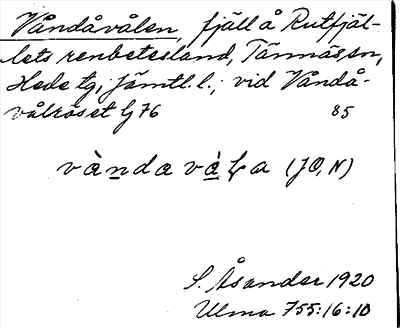 Våndåvålen, fjäll å Rutfjäl-
lets renbetesland, Tännäs sn,
Hede tg, Jämtl. l.; vid Våndå-
vålröset G 76 85
vànda vàɫa (JO, N)
S. Åsander 1920
Ulma 755:16:10